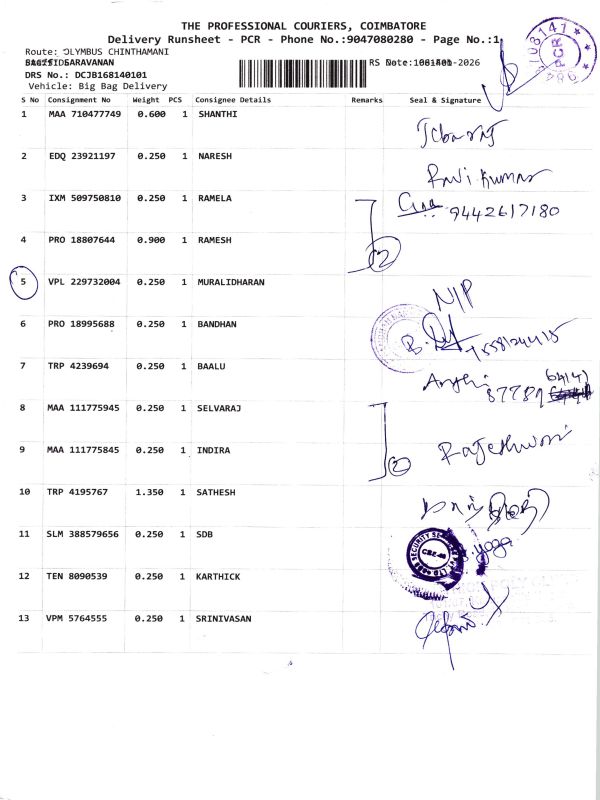 THE PROFESSIONAL COURIERS, COIMBATORE
Delivery Runsheet - PCR - Phone No.:9047080280 - Page No.:1
Route: OLYMBUS CHINTHAMANI
SARAVANAN
DRS No.: DCJB168140101
Vehicle: Big Bag Delivery
S No Consignment No Weight PCS Consignee Details Remarks Seal & Signature
1 MAA 710477749 0.600 1 SHANTHI
2 EDQ 23921197 0.250 1 NARESH Ravi Kumar
3 IXM 509750810 0.250 1 RAMELA 9442617180
4 PRO 18807644 0.900 1 RAMESH 2
5 VPL 229732004 0.250 1 MURALIDHARAN N/P
6 PRO 18995688 0.250 1 BANDHAN
7 TRP 4239694 0.250 1 BAALU
8 MAA 111775945 0.250 1 SELVARAJ
9 MAA 111775845 0.250 1 INDIRA 2 Rajeshwari
10 TRP 4195767 1.350 1 SATHESH
11 SLM 388579656 0.250 1 SDB yoga
12 TEN 8090539 0.250 1 KARTHICK
13 VPM 5764555 0.250 1 SRINIVASAN